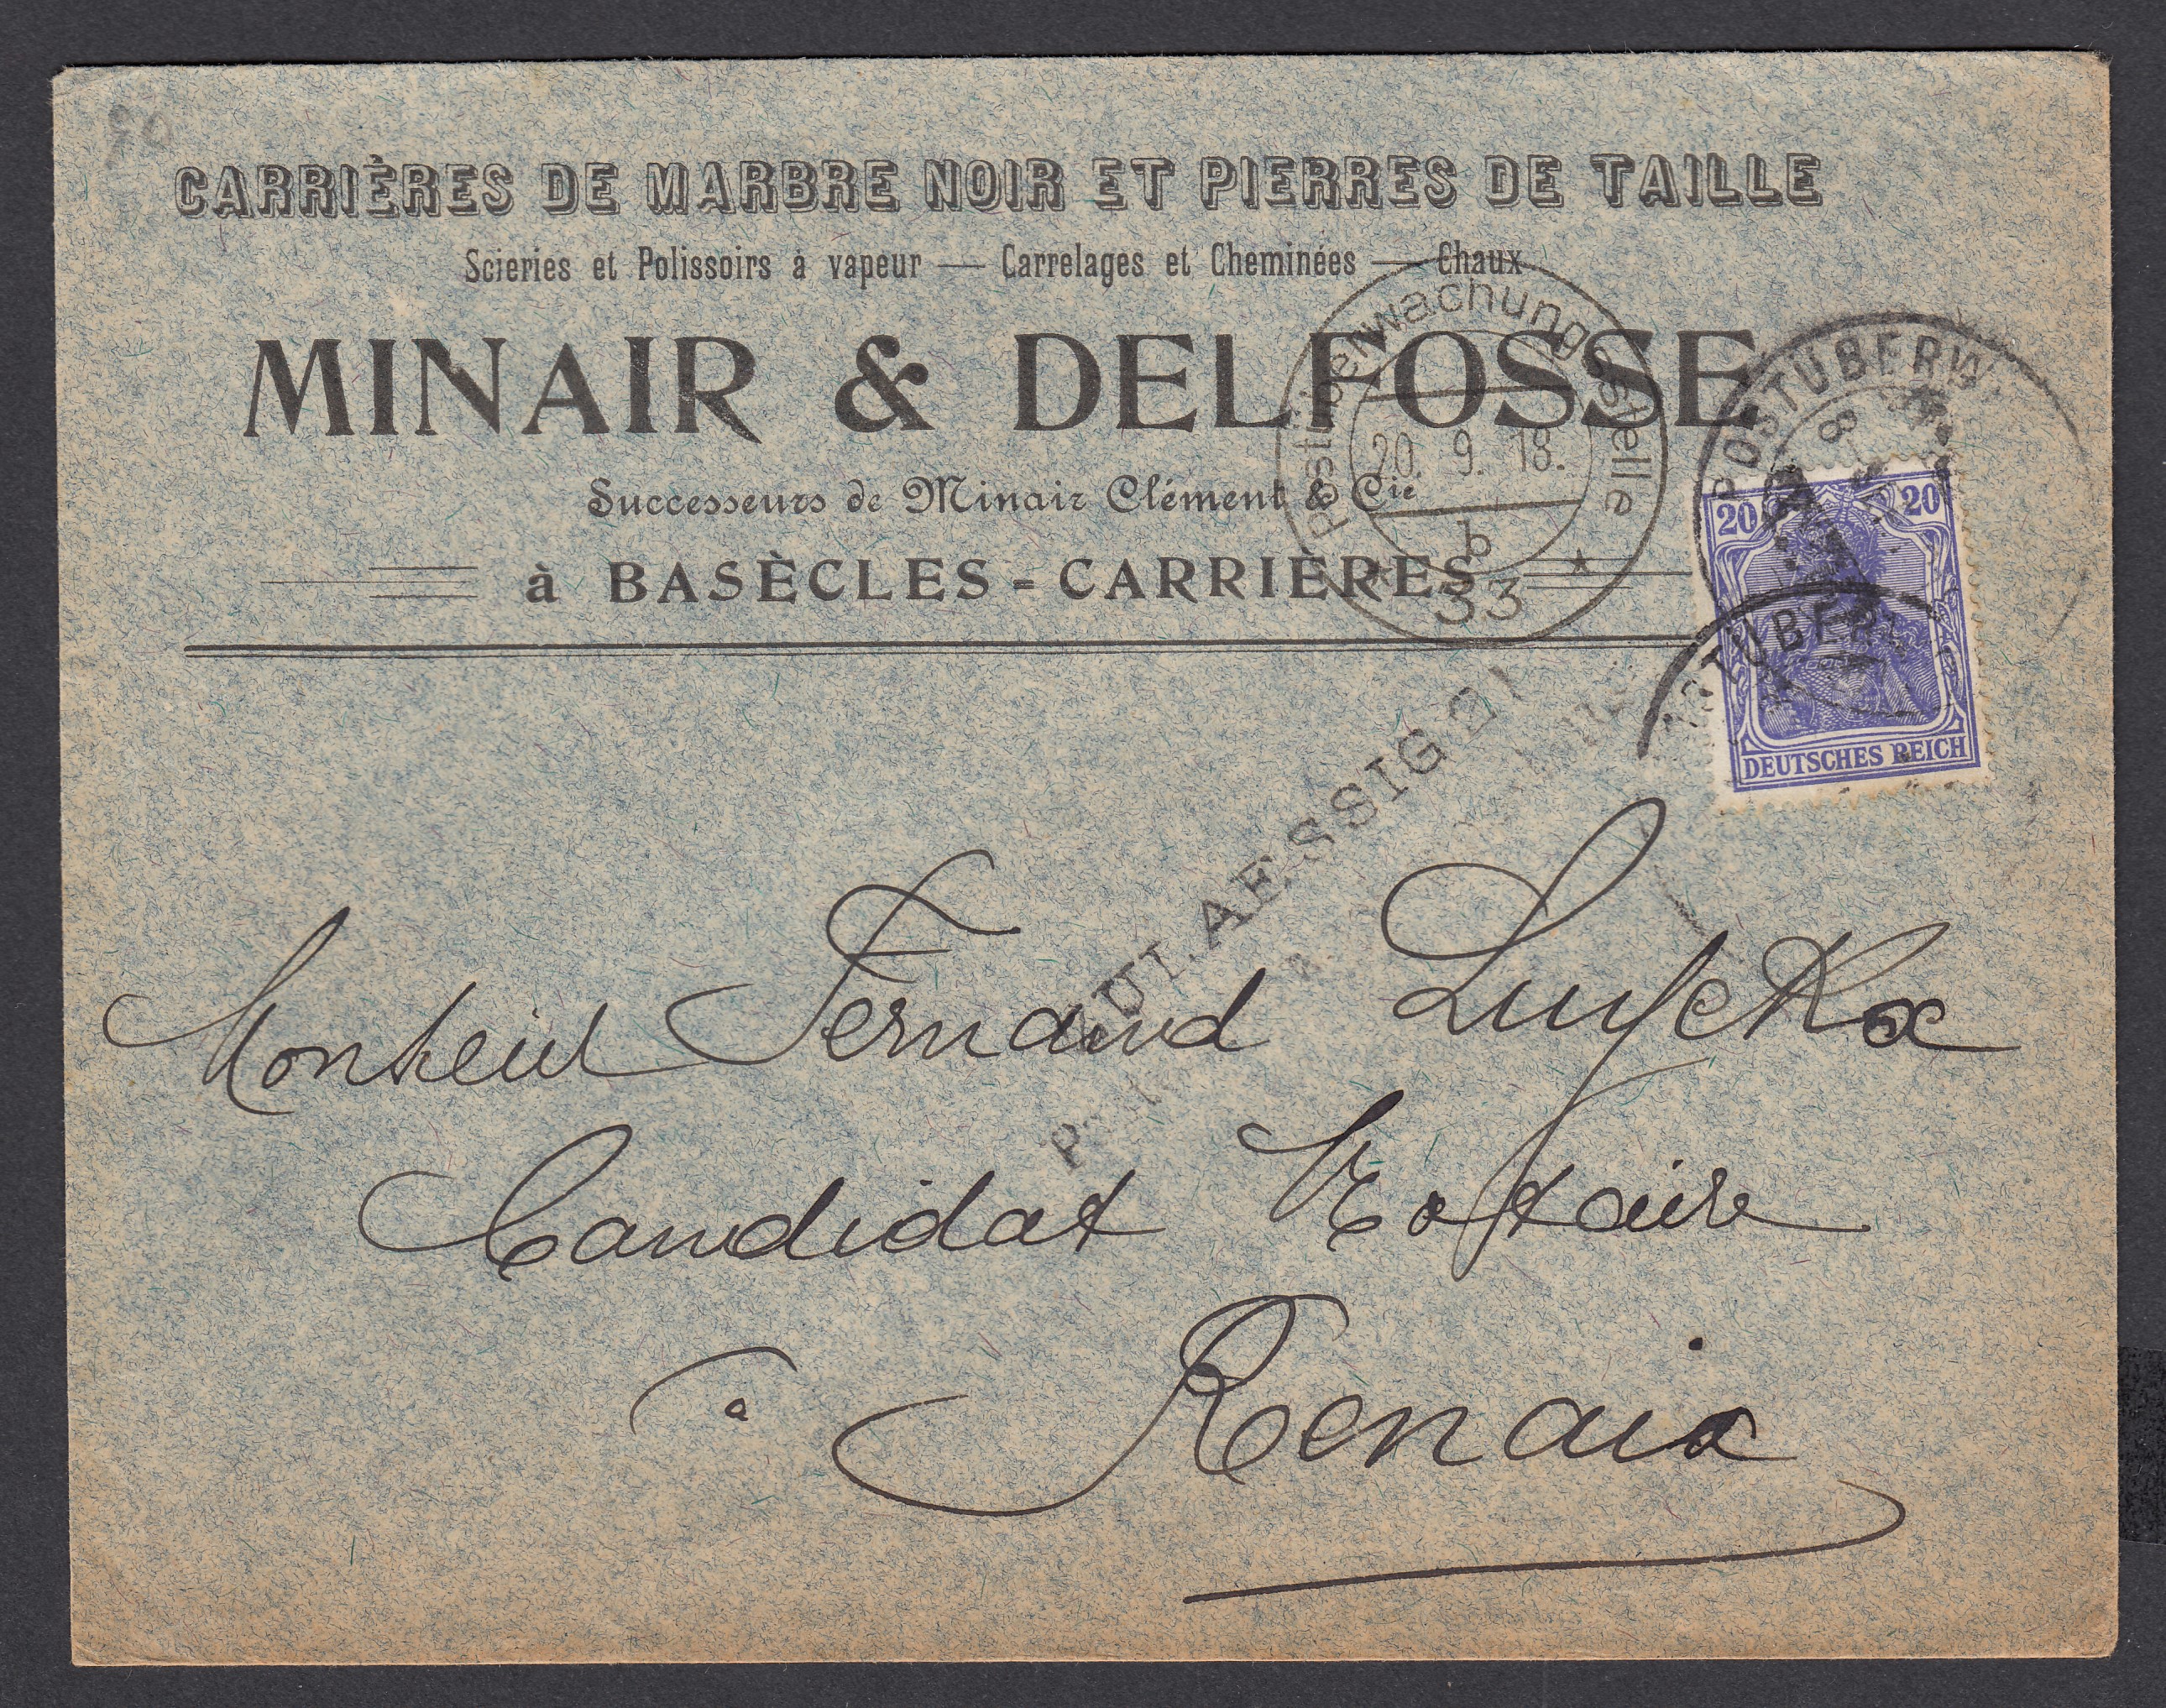 CARRIÈRES DE MARBRE NOIR ET PIERRES DE TAILLE
Scieries et Polissoirs à vapeur — Carrelages et Cheminées — Chaux
MINAIR & DELFOSSE
Successeurs de Minair Clément & Cie
à BASÈCLES - CARRIÈRES
Postüberwachungsstelle
20. 9. 18.
b
* 33 *
POSTÜBERW
8
20 20
TÜBERW
DEUTSCHES REICH
ZULAESSIG
Monsieur Fernand Luyckx
Candidat Notaire
à Renaix